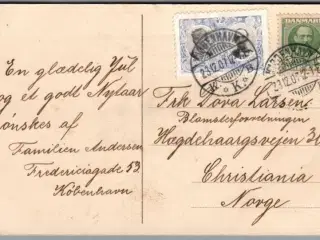 En glædelig Jul
og et godt Nytaar
ønskes af
Familien Andersen
Fredericiagade 53
København
KJØBENHAVN
23.12.07
K.
DANMARK
Frk Dora Larsen
Blomsterforretningen
Hægdehaugsvejen 3
Christiania
Norge